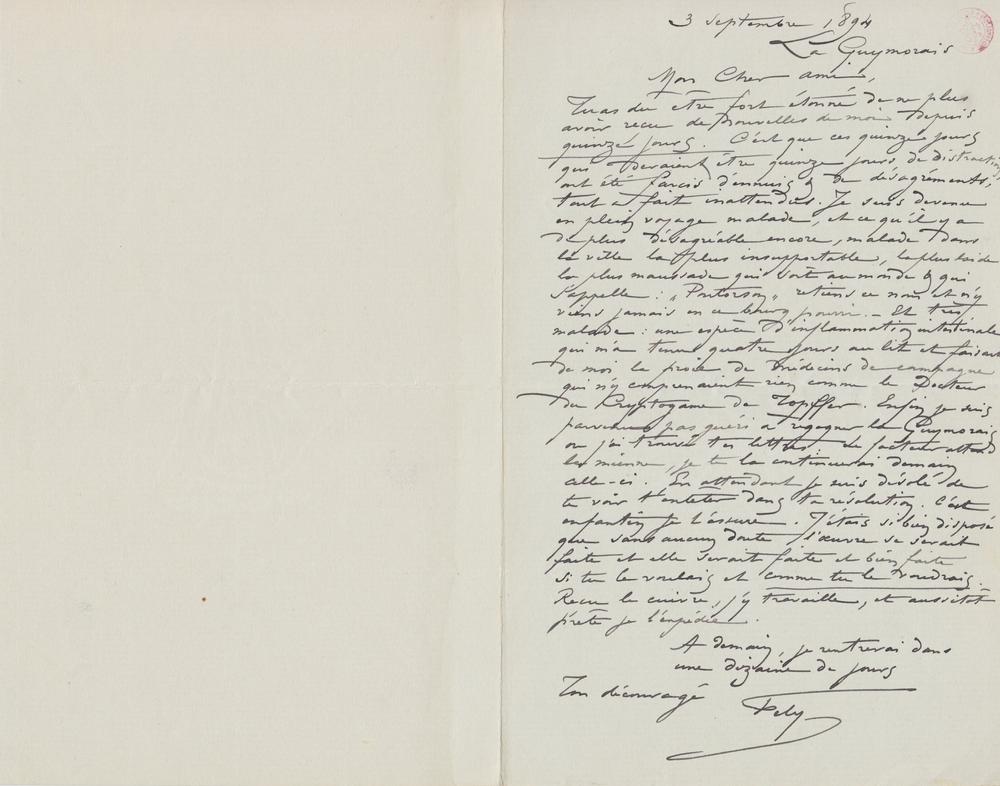 3 Septembre 1894
La Guymorais
Mon Cher ami,
Tu as du être fort étonné de ne plus
avoir recu de nouvelles de moi depuis
quinze jours. C'est que ces quinze jours
qui devaient être quinze jours de distraction
ont été farcis d'ennuis & de désagréments,
tout a fait inattendus. Je suis devenu
en plein voyage malade, et ce qu'il y a
de plus désagréable encore, malade dans
la ville la plus insupportable, la plus laide
la plus maussade qui soit au monde & qui
s'appelle : „Pontorson„ retiens ce nom et n'y
viens jamais en ce bourg pourri. — Et très
malade : une espèce d'inflammation intestinale
qui m'a tenu quatre jours au lit et faisant
de moi la proie de médecins de campagne
qui n'y comprenaient rien comme le Docteur
du Cryptogame de Topffer. Enfin je suis
parvenu pas guéri a regagner la Guymorais
ou j'ai trouvé tes lettres. Le facteur attend
la mienne, je te la continuerai demain
celle-ci. En attendant je suis désolé de
te voir t'enteter dans ta résolution. C'est
enfantin je t'assure. J'étais si bien disposé
que sans aucun doute l'œuvre se serait
faite et elle serait faite et bien faite
si tu le voulais et comme tu le voudrais.
Recu le cuivre, j'y travaille, et aussitôt
prête je l'expédie.
A demain, je rentrerai dans
une dizaine de jours
Ton découragé
Fély